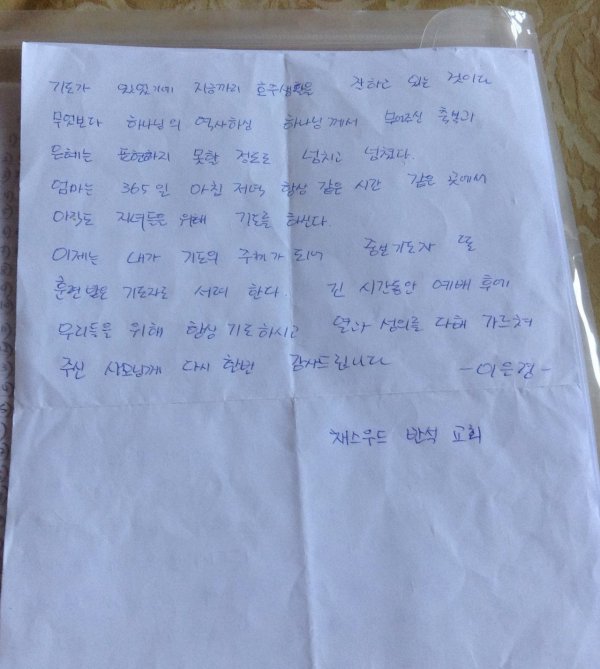 기도가 있었기에 지금까지 호주생활을 잘하고 있는 것이다
무엇보다 하나님의 역사하심 하나님께서 부어주신 축복과
은혜는 표현하지 못할 정도로 넘치고 넘쳤다.
엄마는 365일 아침 저녁 항상 같은 시간 같은 곳에서
아직도 자녀들을 위해 기도를 하신다.
이제는 내가 기도의 주체가 되어 중보기도자 또
훈련받은 기도자로 서려 한다. 긴 시간동안 예배 후에
우리들을 위해 항상 기도하시고 열과 성의를 다해 가르쳐
주신 사모님께 다시 한번 감사드립니다
-이은경-
채스우드 반석 교회